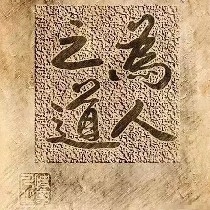 為人
之道